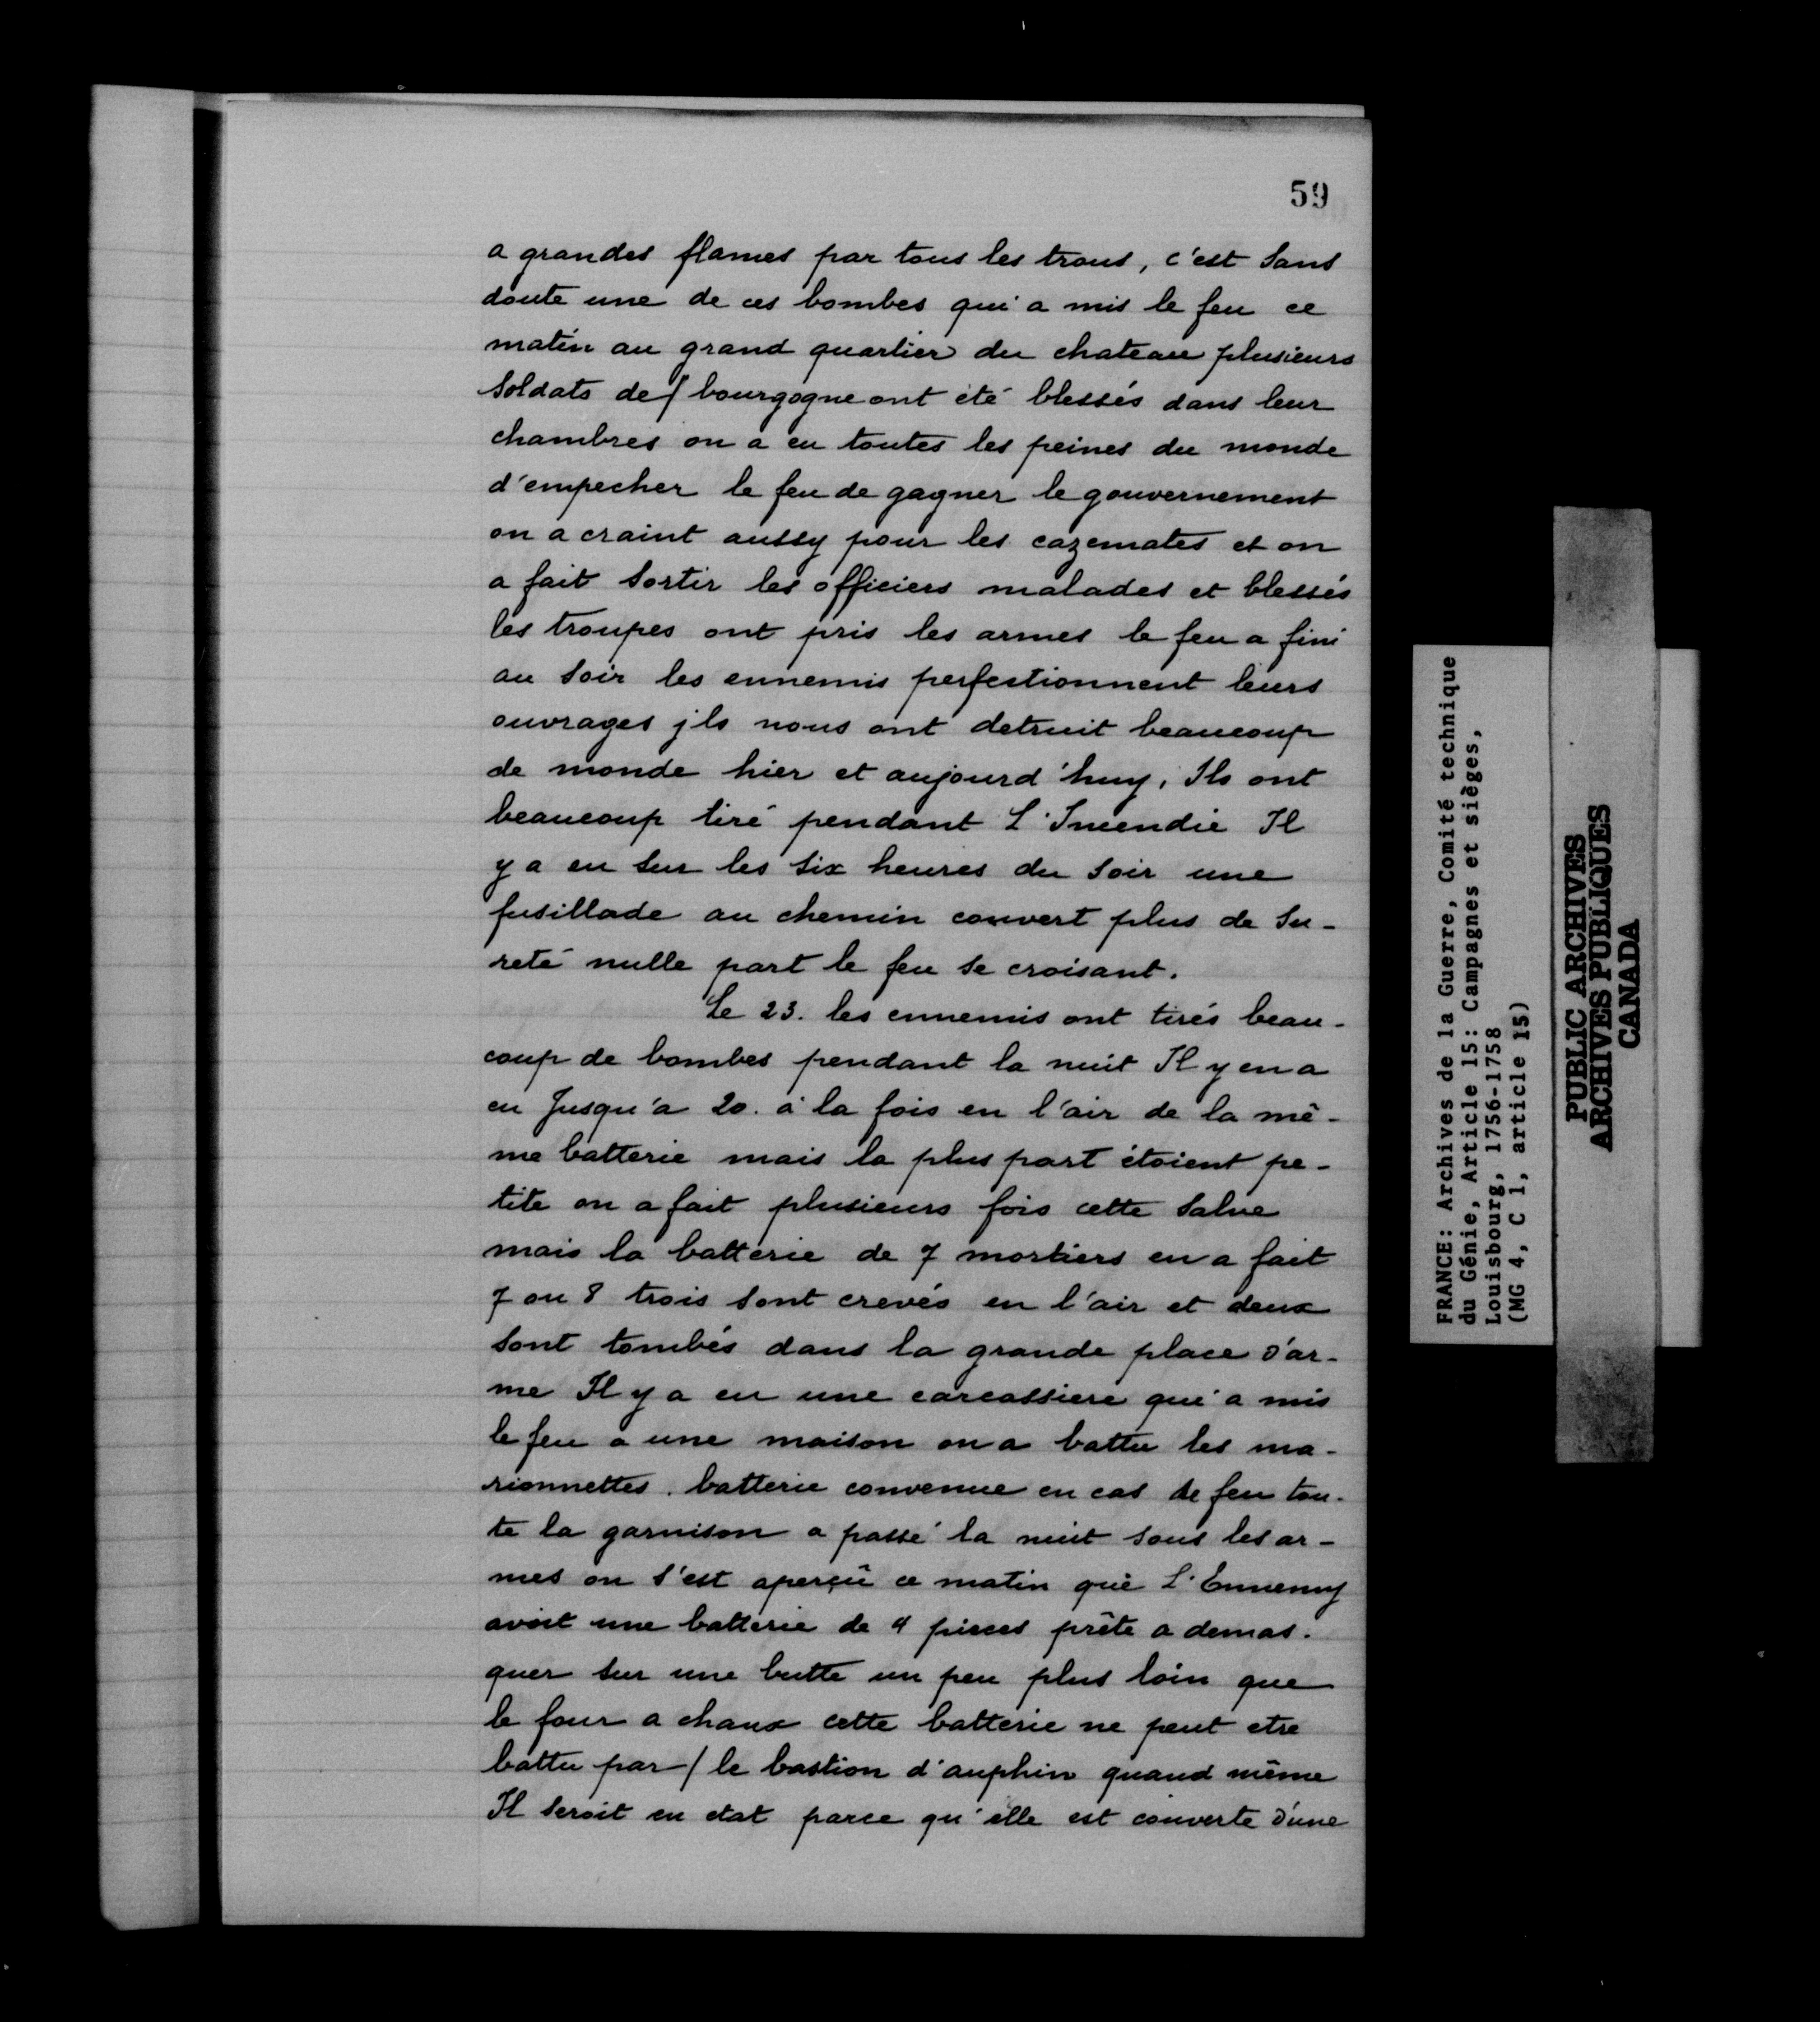 59
a grandes flames par tous les trous, c'est sans
doute une de ces bombes qui a mis le feu ce
matin au grand quartier du chateau plusieurs
soldats de / bourgogne ont été blessés dans leur
chambres on a eu toutes les peines du monde
d'empecher le feu de gagner le gouvernement
on a craint aussy pour les cazemates et on
a fait sortir les officiers malades et blessés
les troupes ont pris les armes le feu a fini
au soir les ennemis perfectionnent leurs
ouvrages jls nous ont detruit beaucoup
de monde hier et aujourd'huy, Ils ont
beaucoup tiré pendant L'Incendie Il
y a eu sur les six heures du soir une
fusillade au chemin couvert plus de su-
reté nulle part le feu se croisant.
Le 23. les ennemis ont tirés beau-
coup de bombes pendant la nuit Il y en a
eu Jusqu'a 20. à la fois en l'air de la mê-
me batterie mais la plus part étoient pe-
tite on a fait plusieurs fois cette salve
mais la batterie de 7 mortiers en a fait
7 ou 8 trois sont crevés en l'air et deux
sont tombés dans la grande place d'ar-
me Il y a eu une carcassiere qui a mis
le feu a une maison on a battu les ma-
rionnettes. batterie convenue en cas de feu tou-
te la garnison a passé la nuit sous les ar-
mes on s'est aperçû ce matin que L'Ennemy
avoit une batterie de 4 pieces prête a demas-
quer sur une butte un peu plus loin que
le four a chaux cette batterie ne peut etre
battu par / le bastion d'auphin quand même
Il seroit en etat parce qu'elle est couverte d'une
FRANCE: Archives de la Guerre, Comité technique
du Génie, Article 15: Campagnes et sièges,
Louisbourg, 1756-1758
(MG 4, C 1, article 15)
PUBLIC ARCHIVES
ARCHIVES PUBLIQUES
CANADA